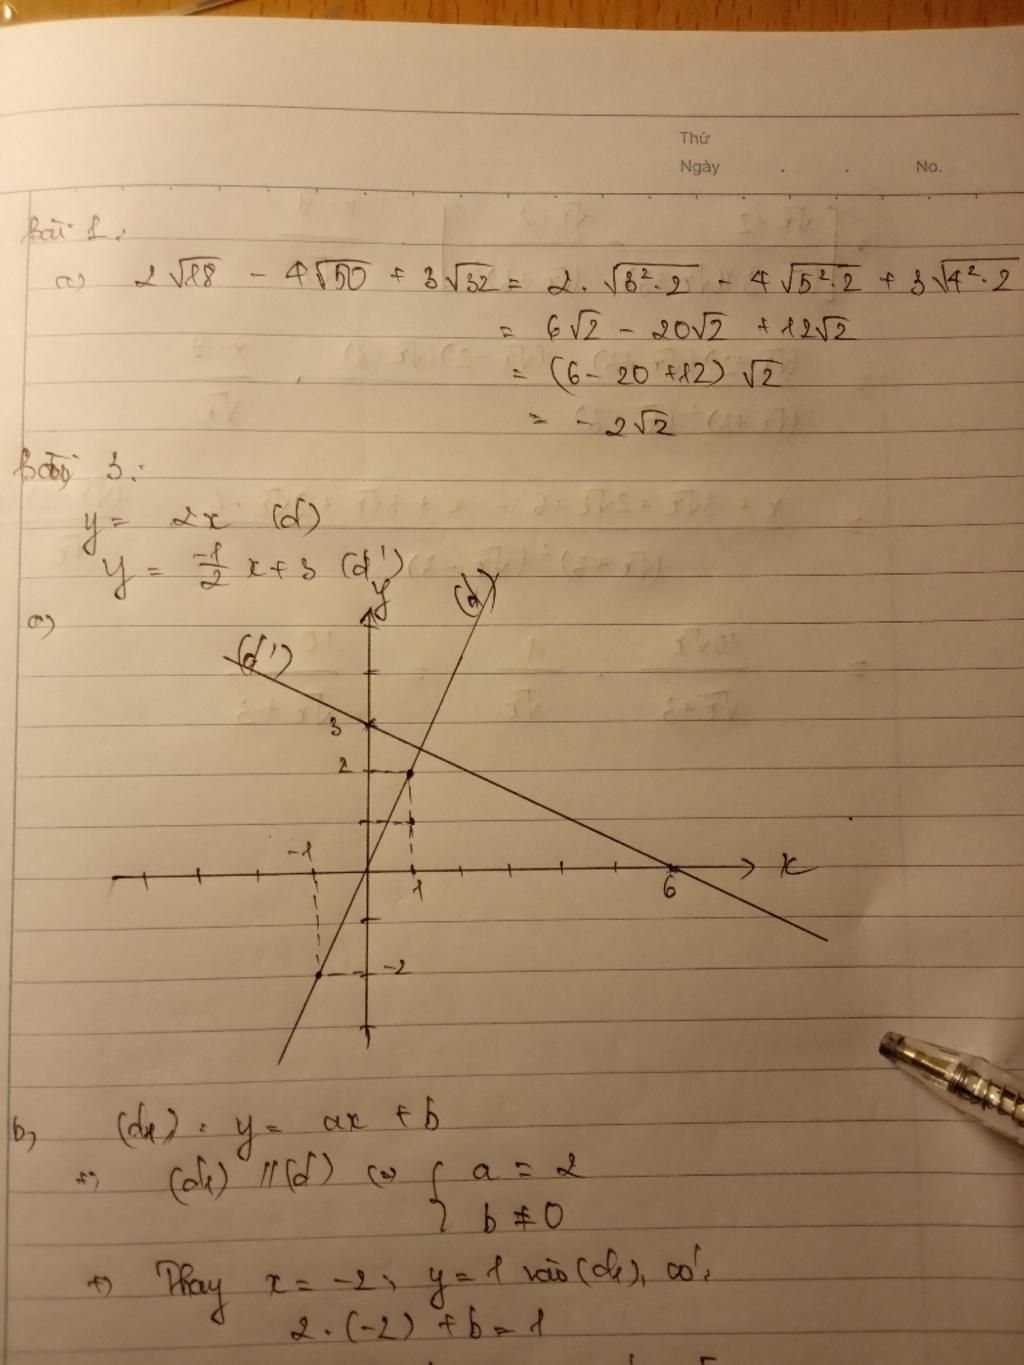 Thứ
Ngày . . No.
Bài 1:
a) 2√18 - 4√50 + 3√32 = 2.√3².2 - 4√5².2 + 3√4².2
= 6√2 - 20√2 + 12√2
= (6 - 20 + 12) √2
= -2√2
Bài 3:
y = 2x (d)
y = -1/2 x + 3 (d')
a)
y
(d)
(d')
3
2
-1
1
6
x
-2
b, (d1): y = ax + b
+) (d1) // (d) ⇔ { a = 2
b ≠ 0
+) Thay x = -2, y = 1 vào (d1), có:
2.(-2) + b = 1